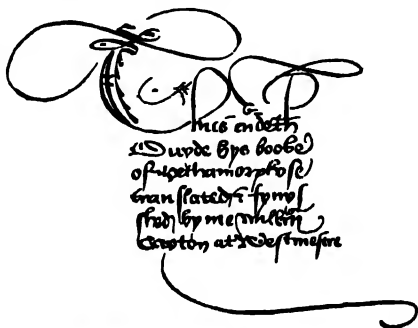 Thus endeth
Ouyde hys booke
of Methamorphose
translated & fynys
shed by me Willm
Caxton at Westmestre